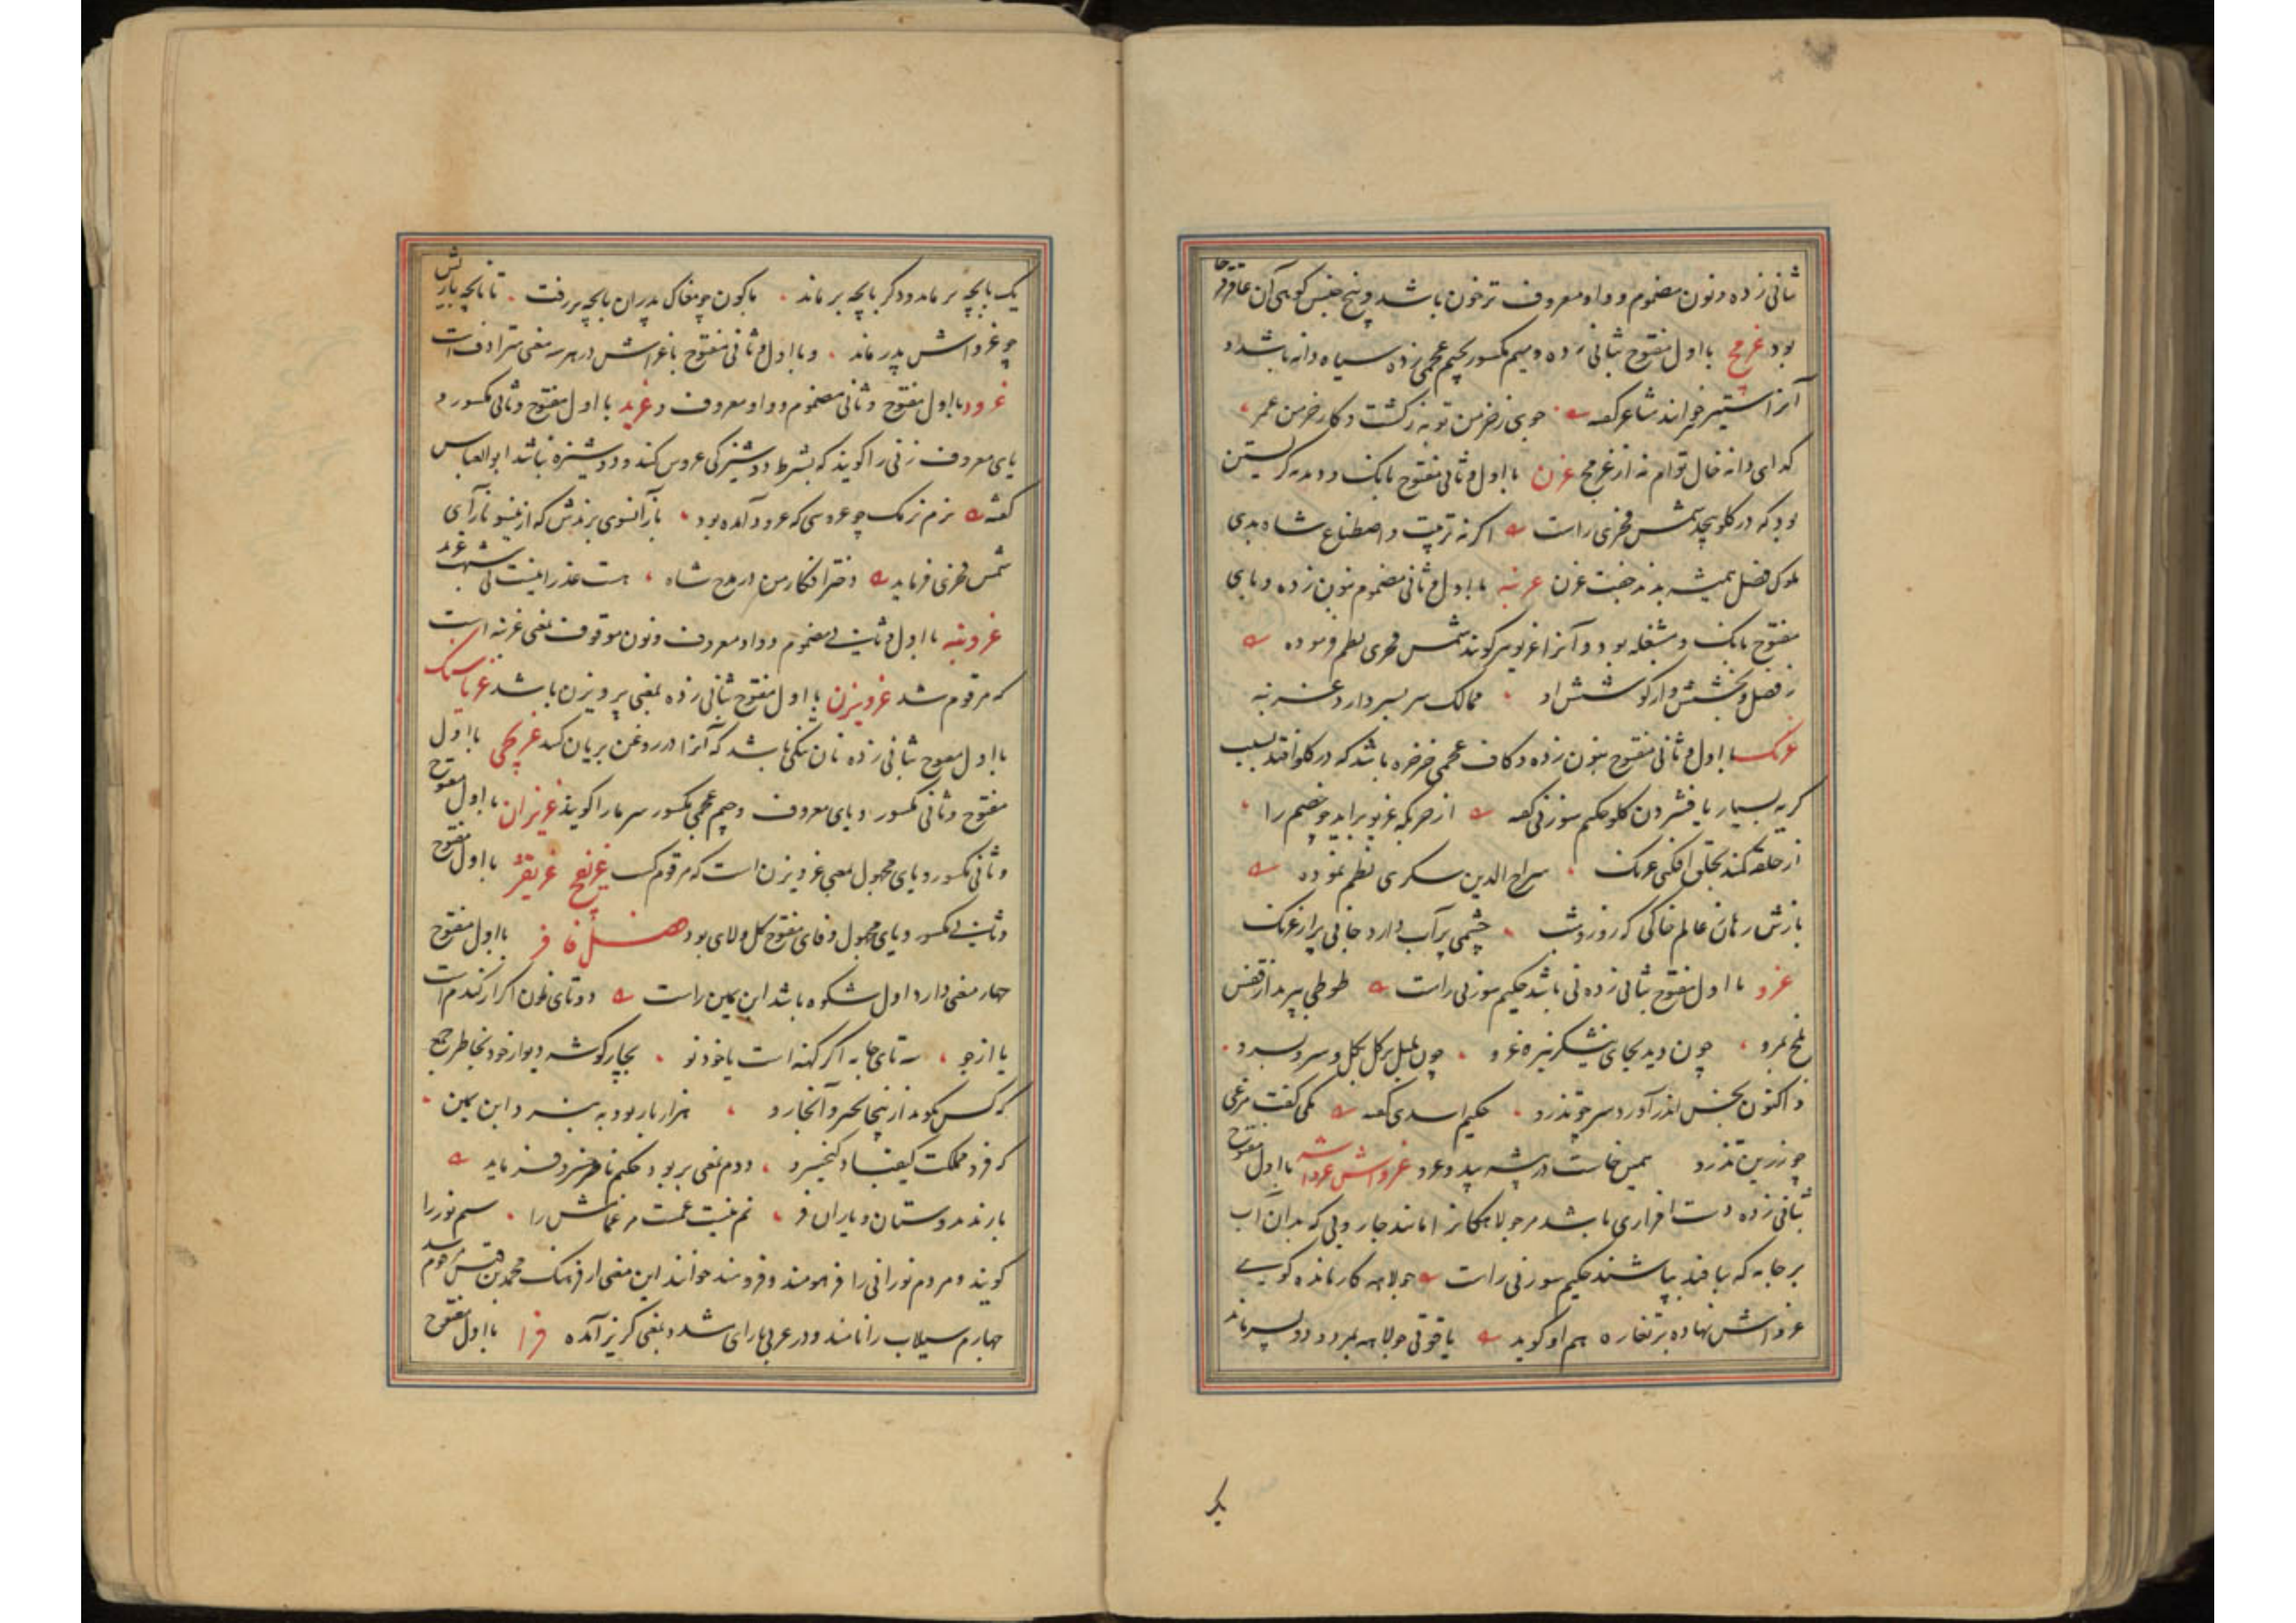 ثانی زده و نون مضموم و واو معروف ترخون باشد و بیخ جنس کوهی آن عاقرقرحا
بود غرمج با اول مفتوح بثانی زده و میم مکسور بجیم عجمی زده سیاه دانه باشد و
آنرا شتیز خوانند شاعر گفته جوی زخرمن تو به ز کشت و کار خرمن عمر
که ای دانه خال توام نه از غرمج غرن با اول و ثانی مفتوح بانک و دمدمه گریستن
بود که در گلو پیچد شمس فخری راست اگر نه تربیت و اصطناع شاه بدی
ملوک فضل همیشه بدند جفت غرن غرنبه با اول و ثانی مضموم بنون زده و بای
مفتوح بانک و مشغله بود و آنرا غریو نیز گویند شمس فخری نظم فرموده
ز فضل و بخشش و از کوشش او ممالک سر بسر دارد غرنبه
غرنک با اول و ثانی مفتوح بنون زده و کاف عجمی خرخره باشد که در گلو افتد بسبب
گریه بسیار یا فشردن گلو حکیم سوزنی گفته از حربگه غریو براید چو خصم را
از حلقه کمند بحلق افکنی غرنک سراج الدین سکزی نظم نموده
بازش رهان عالم خاکی که روز و شب چشمی پرآب دارد جانی پر از غرنک
غرو با اول مفتوح بثانی زده نی باشد حکیم سوزنی راست طوطی بپرید از قفس
بلخ بمرو چون دید بجای نیشکر نیزه غرو چون بلبل بر گل بگل و سرو بسرو
و اکنون بخس اندر آورد سر چو تذرو حکیم اسدی گفته یکی گفت مرغی
چو زرین تذرو همیخاست در بیشه بید و غرو غرواش غرواشه با اول مفتوح
بثانی زده دست افزاری باشد مر جولاهگانرا مانند جاروبی که بدان آب
بر جامه که بافند بپاشند حکیم سوزنی راست جولاهه کار مانده گویی
غرواش نهاده بر تغاره هم او گوید یاقوتی جولاهه بمرد و دو پسر ماند
یک
یک پاچه بر ماند و دگر پاچه بر ماند باکون چو مغاک پدران پاچه بر رفت تا پاچه بارش
چو غرواش پدر ماند و با اول و ثانی مفتوح با غراش در هر سه معنی مترادفست
غرود با اول مفتوح و ثانی مضموم و واو معروف و غرید با اول مفتوح و ثانی مکسور و
یای معروف زنی را گویند که بشرط دوشیزگی عروس کنند و دوشیزه نباشد ابوالعباس
گفته نرم نرمک چو عروسی که غرود آمده بود باز آنسوی بریدش که ازینسو باز آی
شمس فخری فرماید دختر افکار من در مدح شاه هست عذرا نیست بی شبهت غرید
غرونبه با اول و ثانی مضموم و واو معروف و نون موقوف بمعنی غرنبه است
که مرقوم شد غرویزن با اول مفتوح بثانی زده بمعنی پرویزن باشد غریاسنک
با اول مفتوح بثانی زده نان تنکی باشد که آنرا در روغن بریان کنند غریچی با اول
مفتوح و ثانی مکسور و یای معروف و جیم عجمی مکسور سرما را گویند غریزان با اول مفتوح
و ثانی مکسور و یای مجهول بمعنی غرویزن است که مرقوم گشت غریفج غریفژ با اول مفتوح
و ثانی مکسور و یای مجهول و فای مفتوح گل و لای بود فصل فا فر با اول مفتوح
چهار معنی دارد اول شکوه باشد ابن یمین راست دو تای نان اگر از گندم است
یا از جو سه تای جامه اگر کهنه است یا خود نو بچار گوشه دیوار خود بخاطر جمع
که کس نگوید ازینجا بخیز و آنجا رو هزار بار بود به نزد ابن یمین
که فر مملکت کیقباد و کیخسرو دوم بمعنی پر بود حکیم ناصر خسرو فرماید
بارند بدوستان و یاران فر نم نیست عمت مر غمانش را سیم نور را
گویند و مردم نورانی را فرهومند و فرومند خوانند این معنی از فرهنک محمد بن قیس مرقوم شد
چهارم سیلاب را نامند و در عربی با رای مشدد بمعنی گریز آمده فرا با اول مفتوح